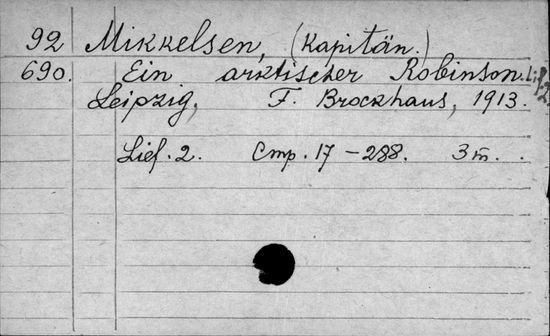 92 Mikkelsen, (Kapitän.)
690. Ein arktischer Robinson.
Leipzig, F. Brockhaus, 1913.
Lief. 2. Cmp. 17 – 288. 3 m. .